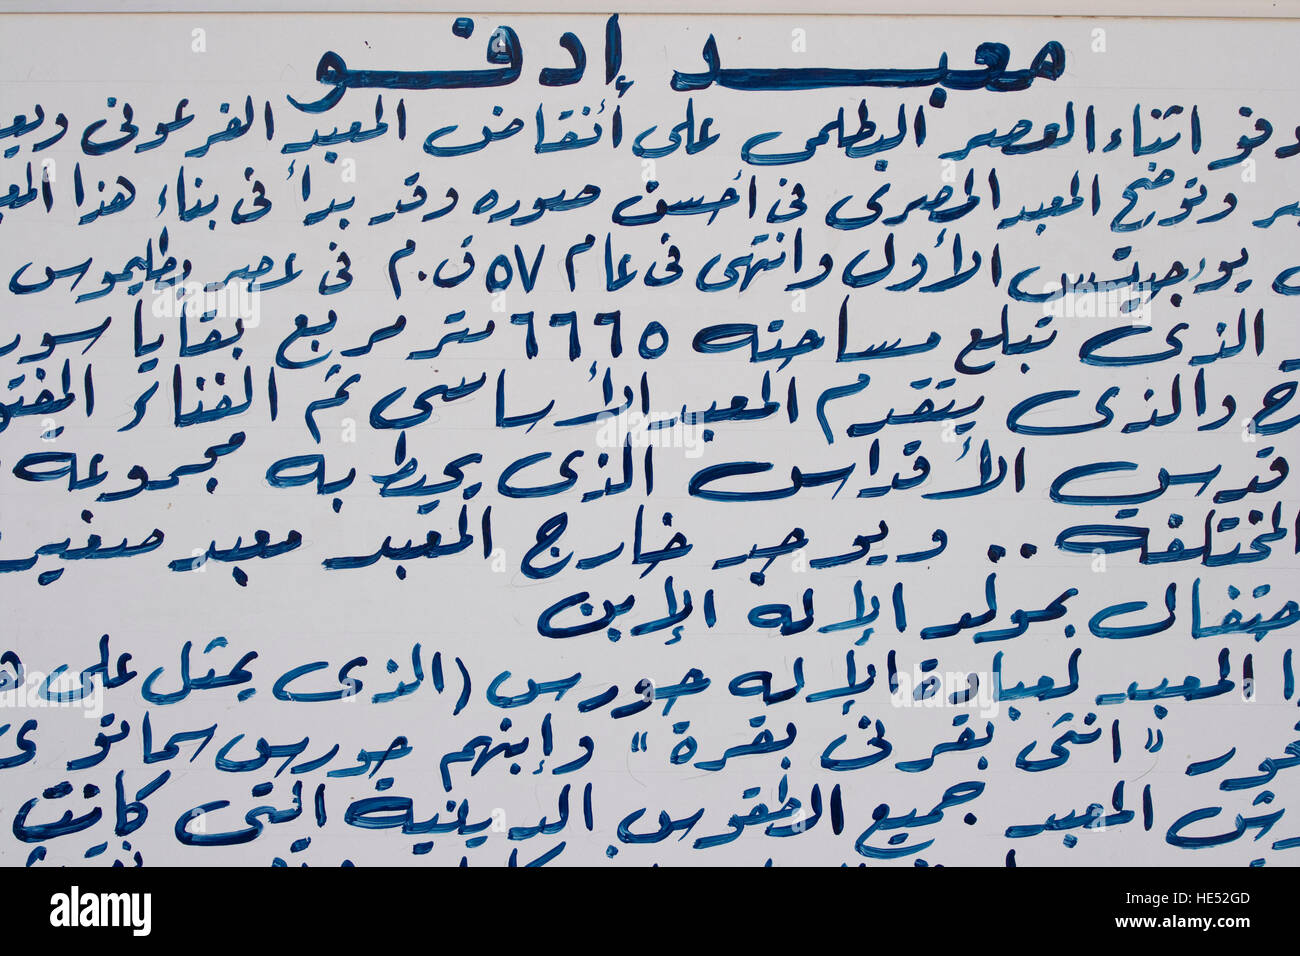 معبد إدفو
دفو اثناء العصر البطلمى على أنقاض المعبد الفرعونى ويع
صر وتوضح المعبد المصرى فى أحسن صوره وقد بدأ فى بناء هذا المع
يورجيتس الأول وانتهى فى عام ٥٧ ق.م فى عصر بطليموس
الذى تبلغ مساحته ٦٦٦٥ متر مربع بقايا سور
والذى يتقدم المعبد الأساسى ثم الفناء المفتو
قدس الأقداس الذى يحيط به مجموعة
المختلفة .. ويوجد خارج المعبد معبد صغير
حتفال بمولد الإله الإبن
ا المعبد لعبادة الإله حورس (الذى يمثل على ه
حور " انثى بقرنى بقرة " وإبنهم حورس سماتوى
رش المعبد جميع الطقوس الدينية التى كانت
alamy
alamy
Image ID: HE52GD
www.alamy.com